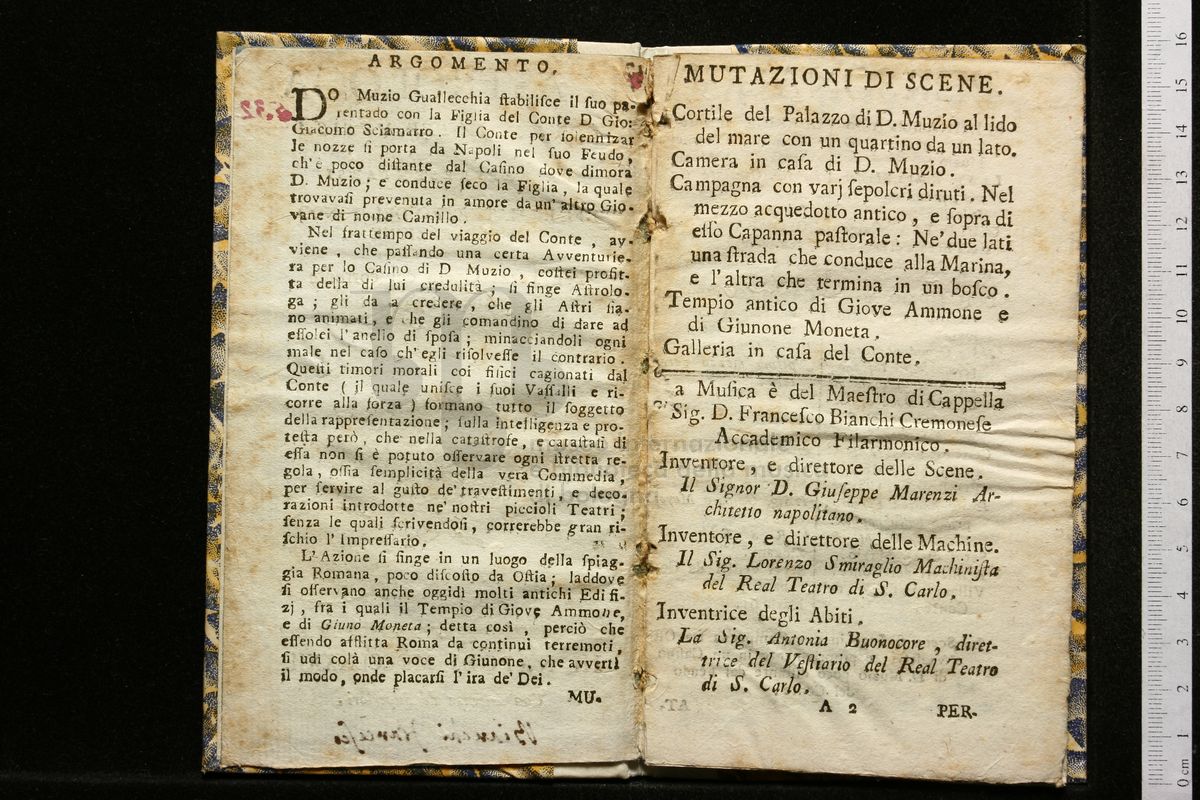 ARGOMENTO.
Do: Muzio Guallecchia ſtabiliſce il ſuo pa-
rentado con la Figlia del Conte D. Gio:
Giacomo Sciamarro. Il Conte per ſolennizar
le nozze ſi porta da Napoli nel ſuo Feudo,
ch'è poco diſtante dal Caſino dove dimora
D. Muzio; e conduce ſeco la Figlia, la quale
trovavaſi prevenuta in amore da un' altro Gio-
vane di nome Camillo.
Nel frattempo del viaggio del Conte, av-
viene, che paſſando una certa Avventurie-
ra per lo Caſino di D Muzio, coſtei profit-
ta della di lui credulità; ſi finge Aſtrolo-
ga; gli da a credere, che gli Aſtri ſia-
no animati, e che gli comandino di dare ad
eſſolei l'anello di ſpoſa; minacciandoli ogni
male nel caſo ch'egli riſolveſſe il contrario.
Queſti timori morali coi fiſici cagionati dal
Conte (il quale uniſce i ſuoi Vaſſalli e ri-
corre alla forza) formano tutto il ſoggetto
della rappreſentazione; ſulla intelligenza e pro-
teſta però, che nella cataſtrofe, e cataſtaſi di
eſſa non ſi è potuto oſſervare ogni ſtretta re-
gola, oſſia ſemplicità della vera Commedia,
per ſervire al guſto de' traveſtimenti, e deco-
razioni introdotte ne' noſtri piccioli Teatri;
ſenza le quali ſcrivendoſi, correrebbe gran ri-
ſchio l' Impreſſario.
L'Azione ſi finge in un luogo della ſpiag-
gia Romana, poco diſcoſto da Oſtia; laddove
ſi oſſervano anche oggidì molti antichi Edifi-
zj, fra i quali il Tempio di Giove Ammone,
e di Giuno Moneta; detta così, perciò che
eſſendo afflitta Roma da continui terremoti,
ſi udì colà una voce di Giunone, che avvertì
il modo, onde placarſi l'ira de' Dei.
MU-
MUTAZIONI DI SCENE.
Cortile del Palazzo di D. Muzio al lido
del mare con un quartino da un lato.
Camera in caſa di D. Muzio.
Campagna con varj ſepolcri diruti. Nel
mezzo acquedotto antico, e ſopra di
eſſo Capanna paſtorale: Ne' due lati
una ſtrada che conduce alla Marina,
e l'altra che termina in un boſco.
Tempio antico di Giove Ammone e
di Giunone Moneta.
Galleria in caſa del Conte.
a Muſica è del Maeſtro di Cappella
Sig. D. Franceſco Bianchi Cremoneſe
Accademico Filarmonico.
Inventore, e direttore delle Scene.
Il Signor D. Giuſeppe Marenzi Ar-
chitetto napolitano.
Inventore, e direttore delle Machine.
Il Sig. Lorenzo Smiraglio Machiniſta
del Real Teatro di S. Carlo.
Inventrice degli Abiti.
La Sig. Antonia Buonocore, diret-
trice del Veſtiario del Real Teatro
di S. Carlo.
A 2 PER-
0 cm 1 2 3 4 5 6 7 8 9 10 11 12 13 14 15 16